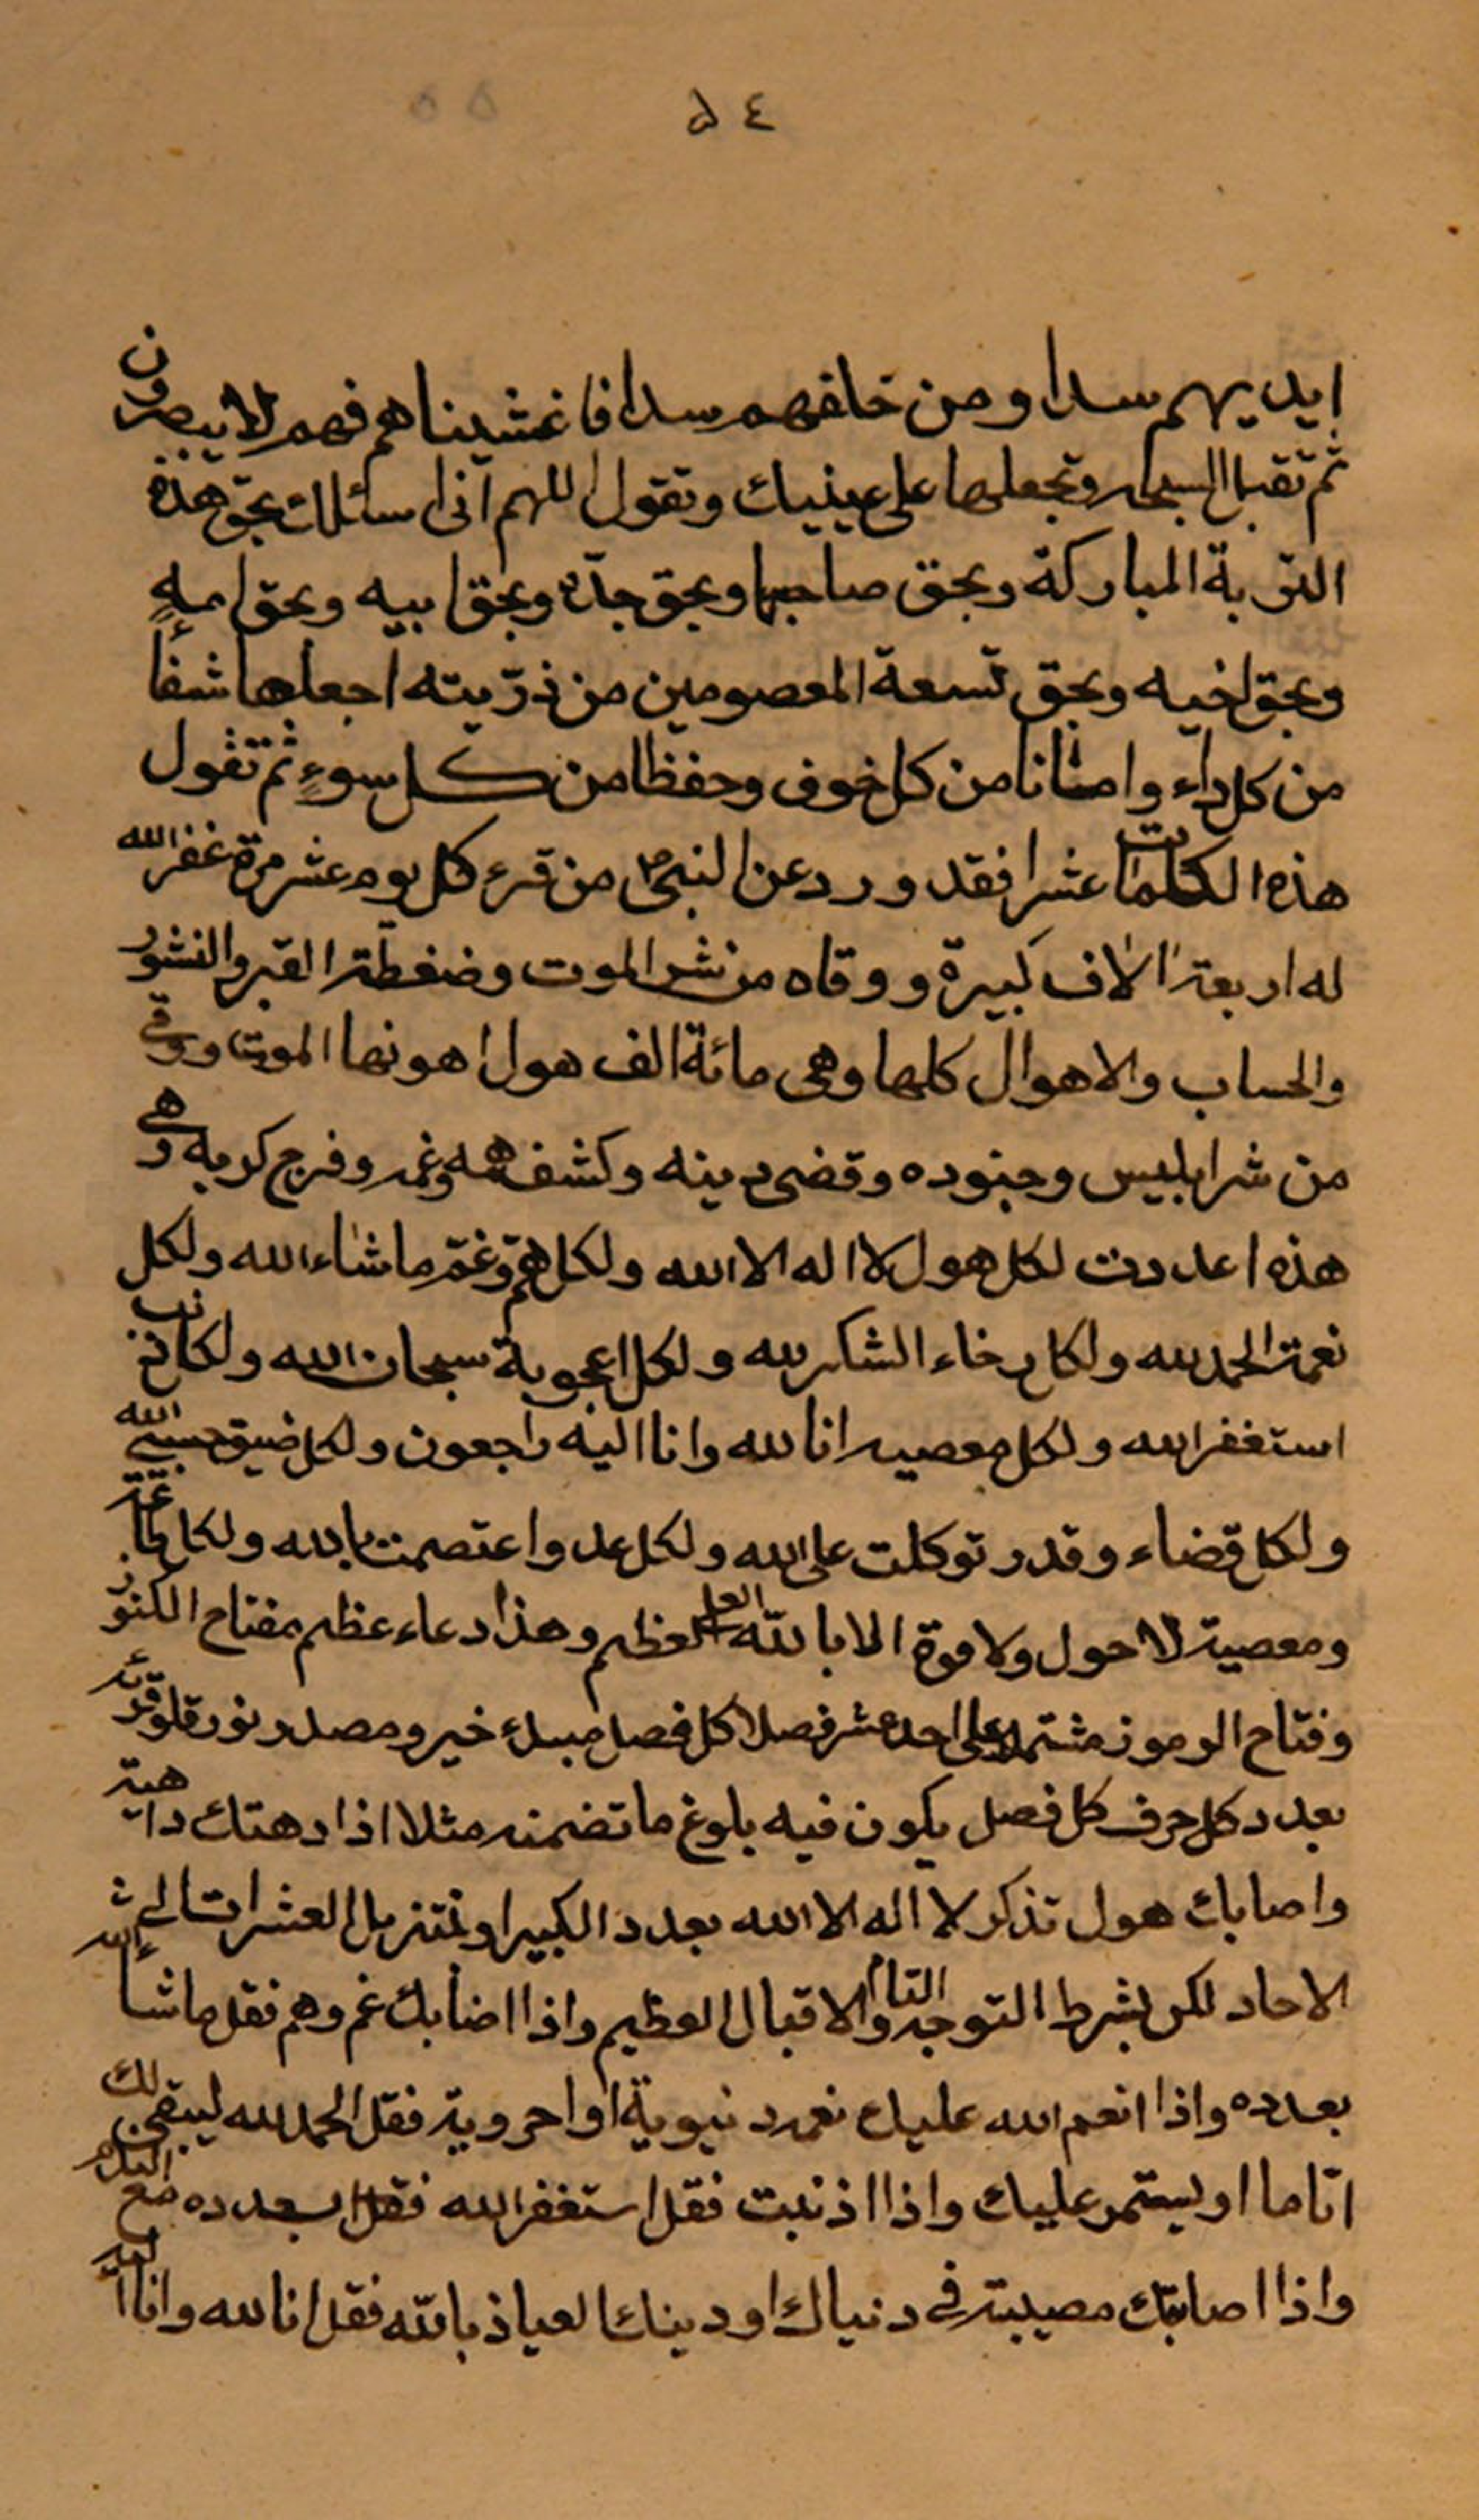 ٥٤
ايديهم سدا ومن خلفهم سدا فاغشيناهم فهم لا يبصرون
ثم تقبل السبحه وتجعلها على عينيك وتقول اللهم انى اسئلك بحق هذه
التربة المباركة وبحق صاحبها وبحق جدّه وبحق ابيه وبحق امهٍ
وبحق اخيه وبحق تسعة المعصومين من ذرّيته اجعلها شفاًء
من كل داء وامانا من كل خوف وحفظا من كل سوءٍ ثم تقول
هذه الكلمات عشرا فقد ورد عن النبى ص من قرء كل يوم عشر مرة غفر الله
له اربعة الاف كبيرة ووقاه من شر الموت وضغطة القبر والنشور
والحساب والاهوال كلها وهى مائة الف هول اهونها الموت ووقى
من شر ابليس وجنوده وقضى دينه وكشف همه وغمه وفرج كربه وهى
هذه اعددت لكل هول لا اله الا الله ولكل همّ وغمّ ما شاء الله ولكل
نعمة الحمد لله ولكل رخاء الشكر لله ولكل اعجوبة سبحان الله ولكل ذنب
استغفر الله ولكل معصيه انا لله وانا اليه راجعون ولكل ضيق حسبى الله
ولكل قضاء وقدر توكلت على الله ولكل عدو اعتصمت بالله ولكل طاعة
ومعصية لا حول ولا قوة الا بالله العلى العظيم وهذا دعاء عظيم مفتاح الكنوز
وفتاح الرموز مشتمل على احد عشر فصلا كل فصل مبدء خير ومصدر نور فلو قرئه
بعدد كل حرف كل فصل يكون فيه بلوغ ما تضمنه مثلا اذا دهتك داهية
واصابك هول تذكر لا اله الا الله بعدد الكبير او تتنزل العشرات الى
الاحاد لكن بشرط التوجه التام والاقبال العظيم واذا اصابك غم وهم فقل ما شاء الله
بعدده واذا انعم الله عليك نعمة دنيوية او اخروية فقل الحمد لله ليبقى لك
اتاما او يستمر عليك واذا اذنبت فقل استغفر الله فقل بعدده مع
واذا اصابتك مصيبة فى دنياك او دينك العياذ بالله فقل انا لله وانا اليه